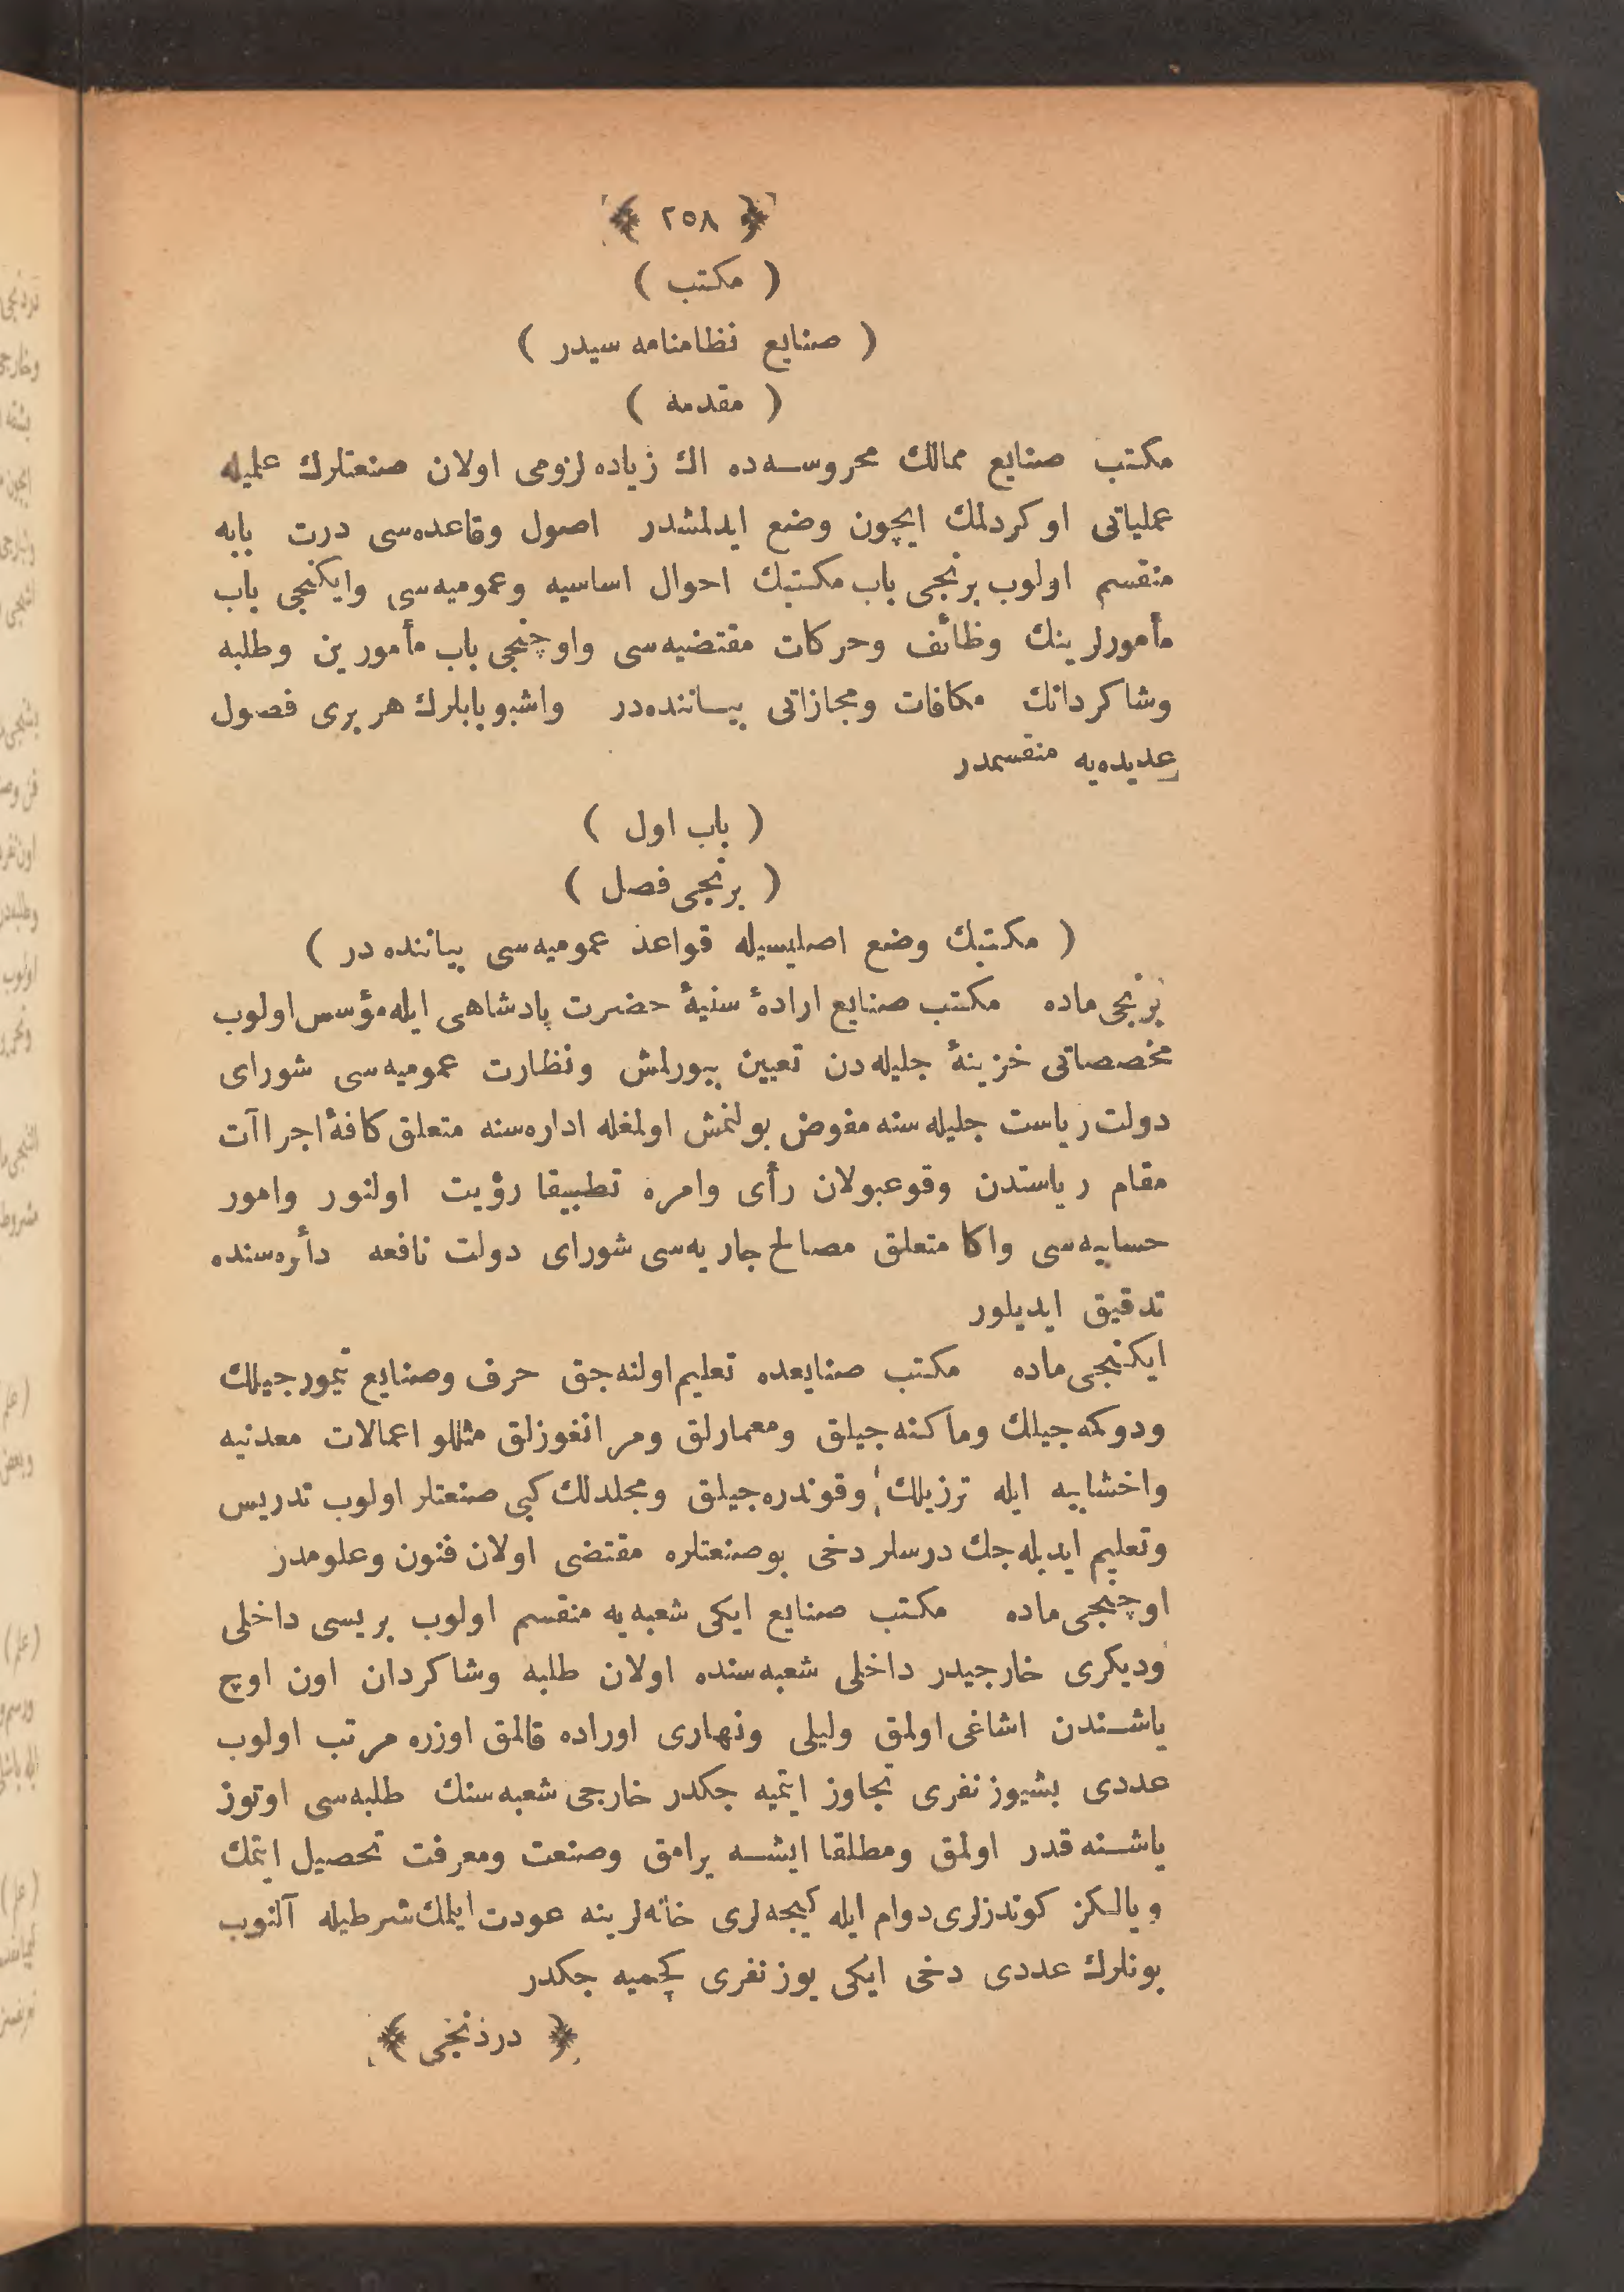 ﴿ ٢٥٨ ﴾
( مكتب )
( صنايع نظامنامه سيدر )
( مقدمه )
مكتب صنايع ممالك محروسه‌ده اك زياده لزومى اولان صنعتلرك علميله
عملياتى اوكردلمك ايچون وضع ايدلمشدر اصول وقاعده‌سى درت بابه
منقسم اولوب برنجى باب مكتبك احوال اساسيه وعموميه‌سى وايكنجى باب
مأمورلرينك وظائف وحركات مقتضيه‌سى واوچنجى باب مأمورين وطلبه
وشاكردانك مكافات ومجازاتى بيساننده‌در واشبو بابلرك هر برى فصول
عديده‌يه منقسمدر
( باب اول )
( برنجى فصل )
( مكتبك وضع اصليسيله قواعد عموميه‌سى بياننده در )
برنجى ماده مكتب صنايع ارادهٔ سنيهٔ حضرت پادشاهى ايله مؤسس اولوب
مخصصاتى خزينهٔ جليله‌دن تعيين بيورلمش ونظارت عموميه‌سى شوراى
دولت رياست جليله سنه مفوض بولنمش اولمغله اداره‌سنه متعلق كافهٔ اجراآت
مقام رياستدن وقوعبولان رأى وامره تطبيقا رؤيت اولنور وامور
حسابيه‌سى واكا متعلق مصالح جاريه‌سى شوراى دولت نافعه دأره‌سنده
تدقيق ايديلور
ايكنجى ماده مكتب صنايعده تعليم اولنه‌جق حرف وصنايع تيمورجيلك
ودوكمه‌جيلك وماكنه‌جيلق ومعمارلق ومرانغوزلق مثللو اعمالات معدنيه
واخشابيه ايله ترزيلك وقوندره‌جيلق ومجلدلك كبى صنعتلر اولوب تدريس
وتعليم ايديله‌جك درسلر دخى بوصنعتلره مقتضى اولان فنون وعلومدر
اوچنجى ماده مكتب صنايع ايكى شعبه‌يه منقسم اولوب بريسى داخلى
وديكرى خارجيدر داخلى شعبه‌سنده اولان طلبه وشاكردان اون اوچ
ياشندن اشاغى اولمق وليلى ونهارى اوراده قالمق اوزره مرتب اولوب
عددى بشيوز نفرى تجاوز ايتميه جكدر خارجى شعبه‌سنك طلبه‌سى اوتوز
ياشنه قدر اولمق ومطلقا ايشه يرامق وصنعت ومعرفت تحصيل ايتمك
ويالكز كوندزلرى دوام ايله كيجه‌لرى خانه‌لرينه عودت ايلمك شرطيله آلنوب
بونلرك عددى دخى ايكى يوز نفرى كچميه جكدر
﴿ دردنجى ﴾